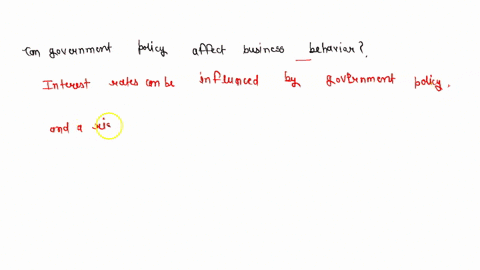 Can government policy affect business behavior?
Interest rates can be influnced by government policy.
and a ris